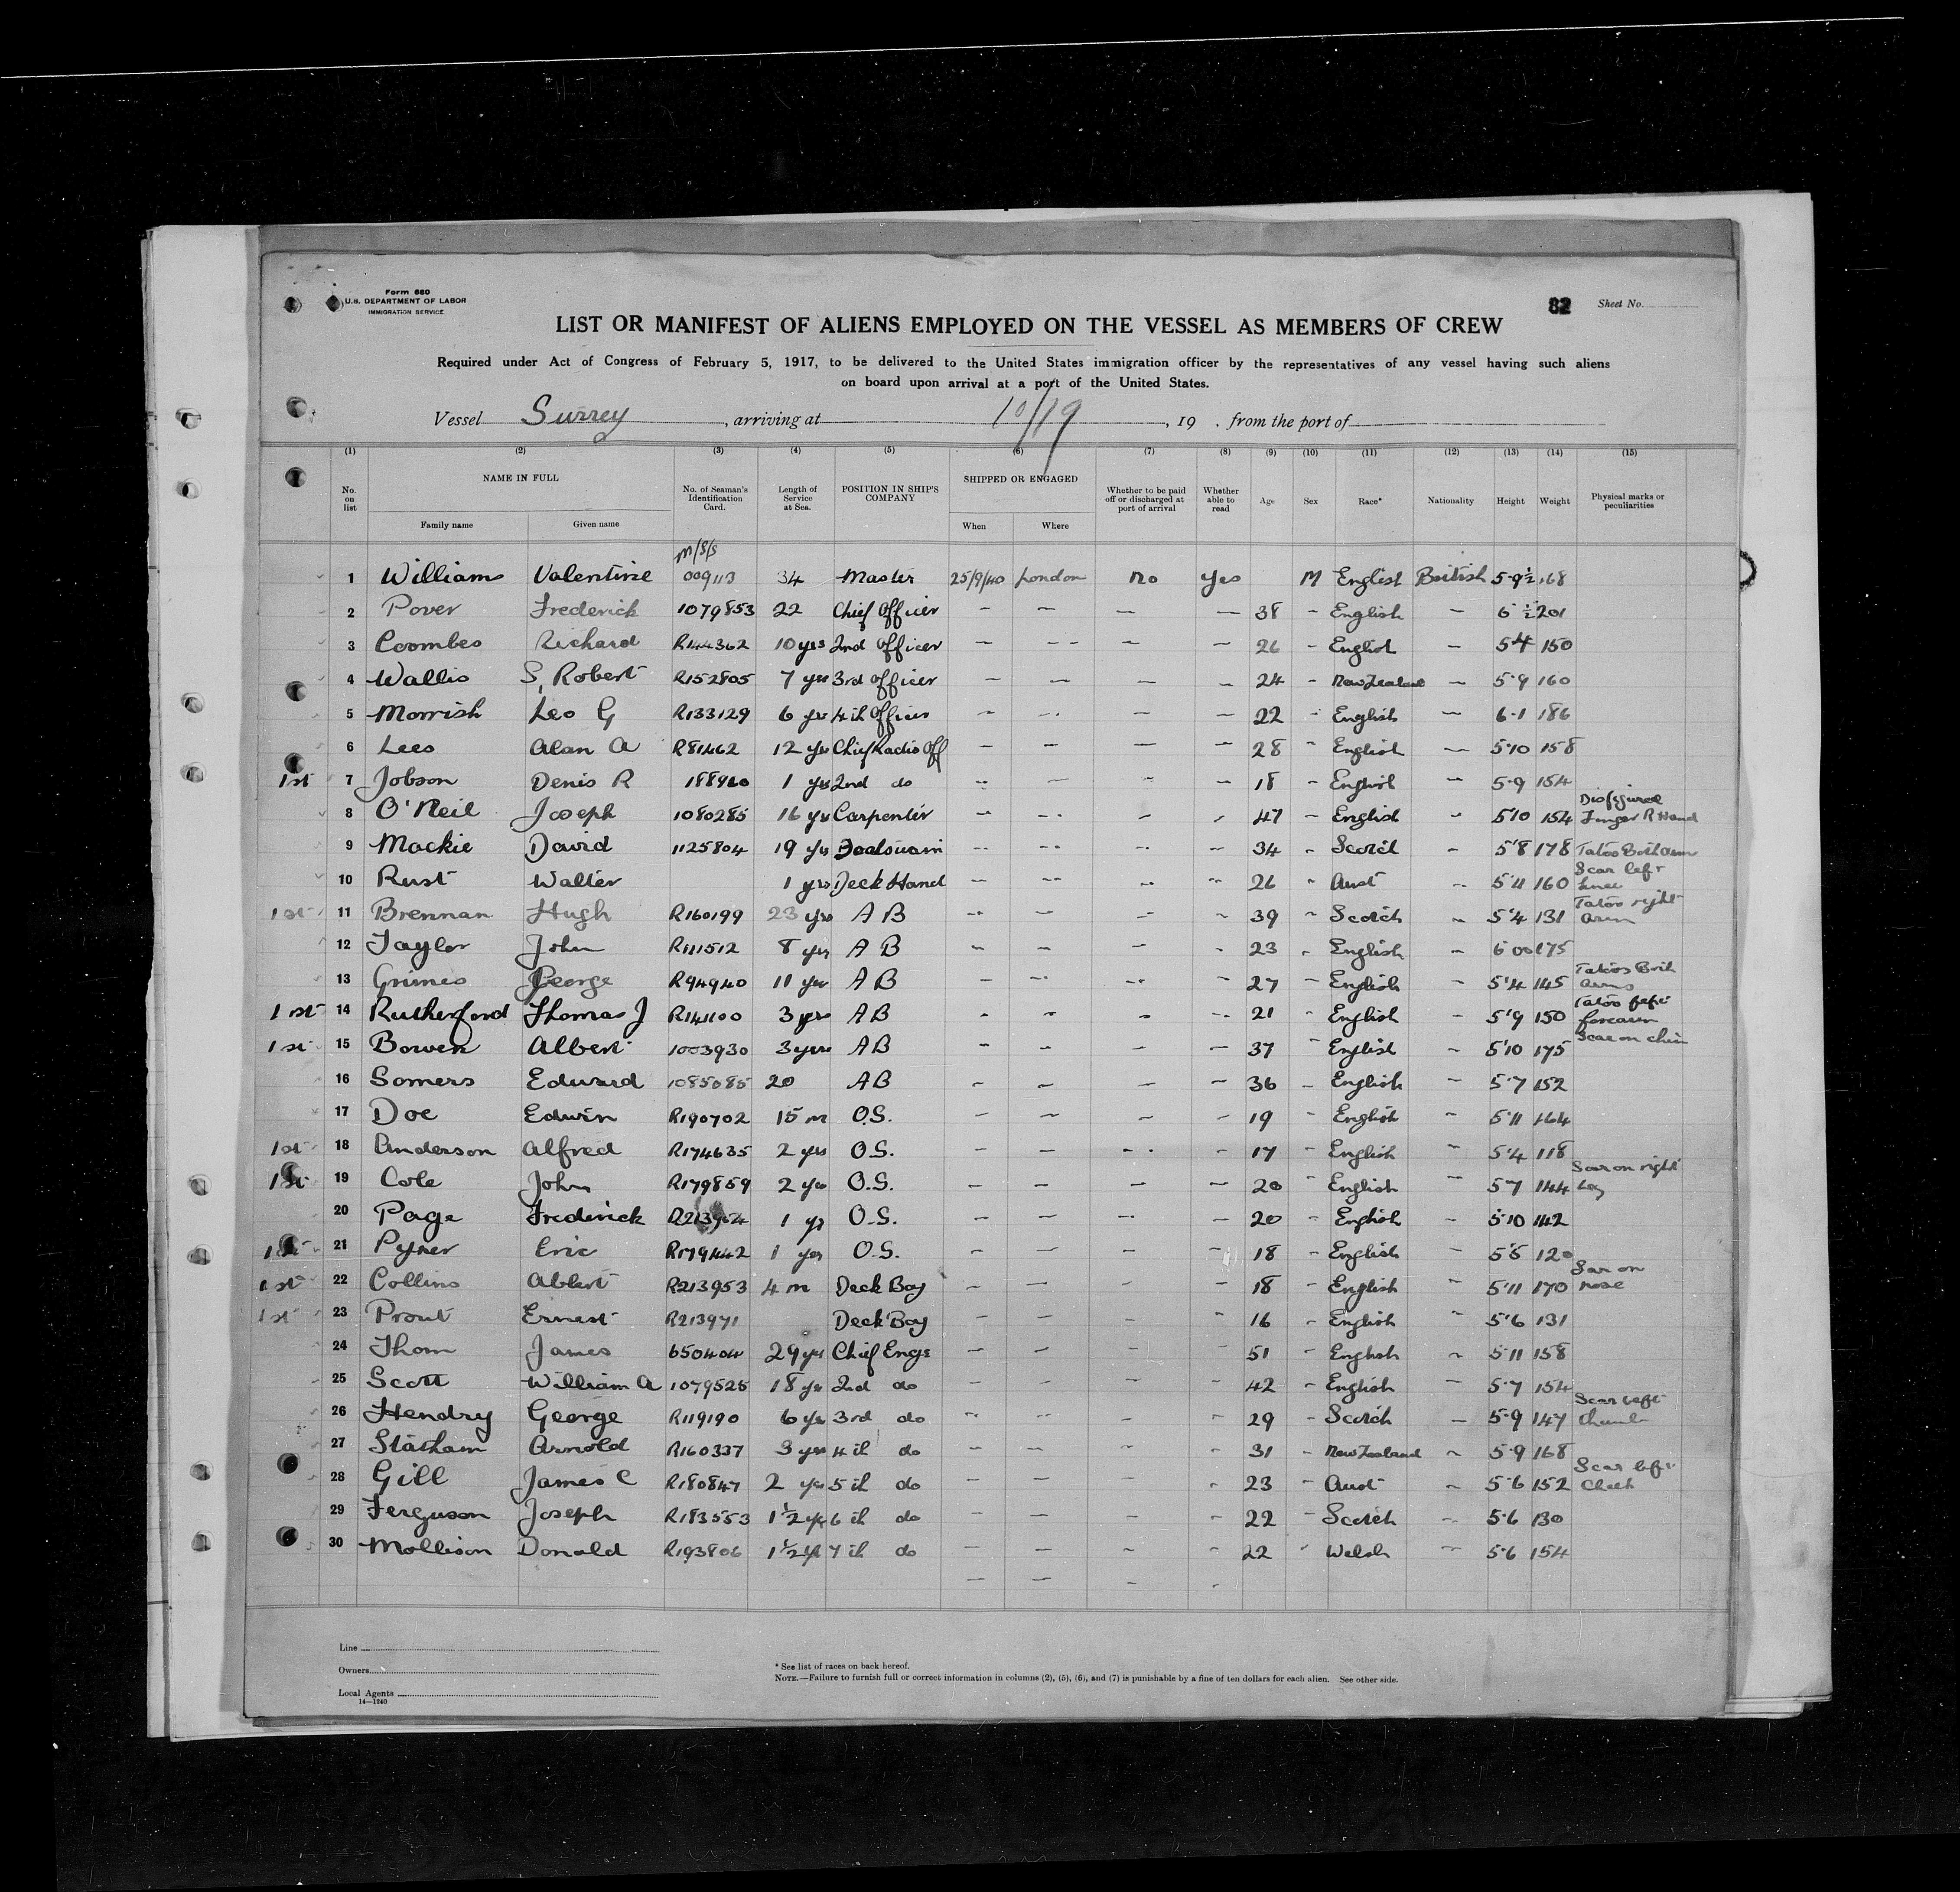 Form 680
U.S. DEPARTMENT OF LABOR
IMMIGRATION SERVICE
82 Sheet No.
LIST OR MANIFEST OF ALIENS EMPLOYED ON THE VESSEL AS MEMBERS OF CREW
Required under Act of Congress of February 5, 1917, to be delivered to the United States immigration officer by the representatives of any vessel having such aliens
on board upon arrival at a port of the United States.
Vessel Surrey, arriving at 10/19, 19 . from the port of
(1) (2) (3) (4) (5) (6) (7) (8) (9) (10) (11) (12) (13) (14) (15)
No. on list NAME IN FULL Family name Given name No. of Seaman's Identification Card. Length of Service at Sea. POSITION IN SHIP'S COMPANY SHIPPED OR ENGAGED When Where Whether to be paid off or discharged at port of arrival Whether able to read Age Sex Race* Nationality Height Weight Physical marks or peculiarities
1 Williams Valentine 009113 34 Master 25/9/40 London no yes M English British 5-9½ 168
2 Pover Frederick 1079853 22 Chief Officer - - - - 38 - English - 6 ½ 201
3 Coombes Richard R144362 10 yrs 2nd Officer - - - - 26 - English - 5 4 150
4 Wallis S, Robert R152805 7 yrs 3rd Officer - - - - 24 - New Zealand - 5-9 160
5 Morrish Leo G R133129 6 yrs 4th Officer - - - - 22 - English - 6-1 186
6 Lees Alan A R81462 12 yrs Chief Radio Off - - - - 28 - English - 5-10 158
1st 7 Jobson Denis R 188960 1 yrs 2nd do - - - - 18 - English - 5-9 154
8 O'Neil Joseph 1080285 16 yrs Carpenter - - - - 47 - English - 5'10 154 Disfigured Finger R Hand
9 Mackie David 1125804 19 yrs Boatswain - - - - 34 - Scotch - 5'8 178 Tatoo Both arm
10 Rust Walter 1 yrs Deck Hand - - - - 26 - Aust - 5-11 160 Scar left knee
1st 11 Brennan Hugh R160199 23 yrs A B - - - - 39 - Scotch - 5'4 131 Tatoo right arm
12 Taylor John R111512 8 yrs A B - - - - 23 - English - 6 00 175
13 Grimes George R94940 11 yrs A B - - - - 27 - English - 5'4 145 Tatoos Both arms
1st 14 Rutherford Thomas J R141100 3 yrs A B - - - - 21 - English - 5'9 150 Tatoo left forearm
1st 15 Bowen Albert 1003930 3 yrs A B - - - - 37 - English - 5'10 175 Scar on chin
16 Somers Edward 1085085 20 A B - - - - 36 - English - 5-7 152
17 Doe Edwin R190702 15 m O.S. - - - - 19 - English - 5'11 164
1st 18 Anderson Alfred R174635 2 yrs O.S. - - - - 17 - English - 5'4 118
1st 19 Cole John R179859 2 yrs O.S. - - - - 20 - English - 5'7 144 Scar on right leg
20 Page Frederick 1 yr O.S. - - - - 20 - English - 5-10 142
1st 21 Pyner Eric R179442 1 yrs O.S. - - - - 18 - English - 5'5 120
1st 22 Collins Albert R213953 4 m Deck Boy - - - - 18 - English - 5'11 170 Scar on nose
1st 23 Prout Ernest R213971 Deck Boy - - - - 16 - English - 5'6 131
24 Thom James 650404 29 yrs Chief Engr - - - - 51 - English - 5-11 158
25 Scott William A 1079525 18 yrs 2nd do - - - - 42 - English - 5-7 154
26 Hendry George R119190 6 yrs 3rd do - - - - 29 - Scotch - 5-9 147 Scar left thumb
27 Statham Arnold R160337 3 yrs 4th do - - - - 31 - New Zealand - 5-9 168
28 Gill James C R180847 2 yrs 5th do - - - - 23 - Aust - 5-6 152 Scar left cheek
29 Ferguson Joseph R183553 1½ yrs 6th do - - - - 22 - Scotch - 5-6 130
30 Mollison Donald R193806 1½ yr 7th do - - - - 22 - Welsh - 5-6 154
Line
Owners
Local Agents
14—1240
* See list of races on back hereof.
NOTE.—Failure to furnish full or correct information in columns (2), (5), (6), and (7) is punishable by a fine of ten dollars for each alien. See other side.